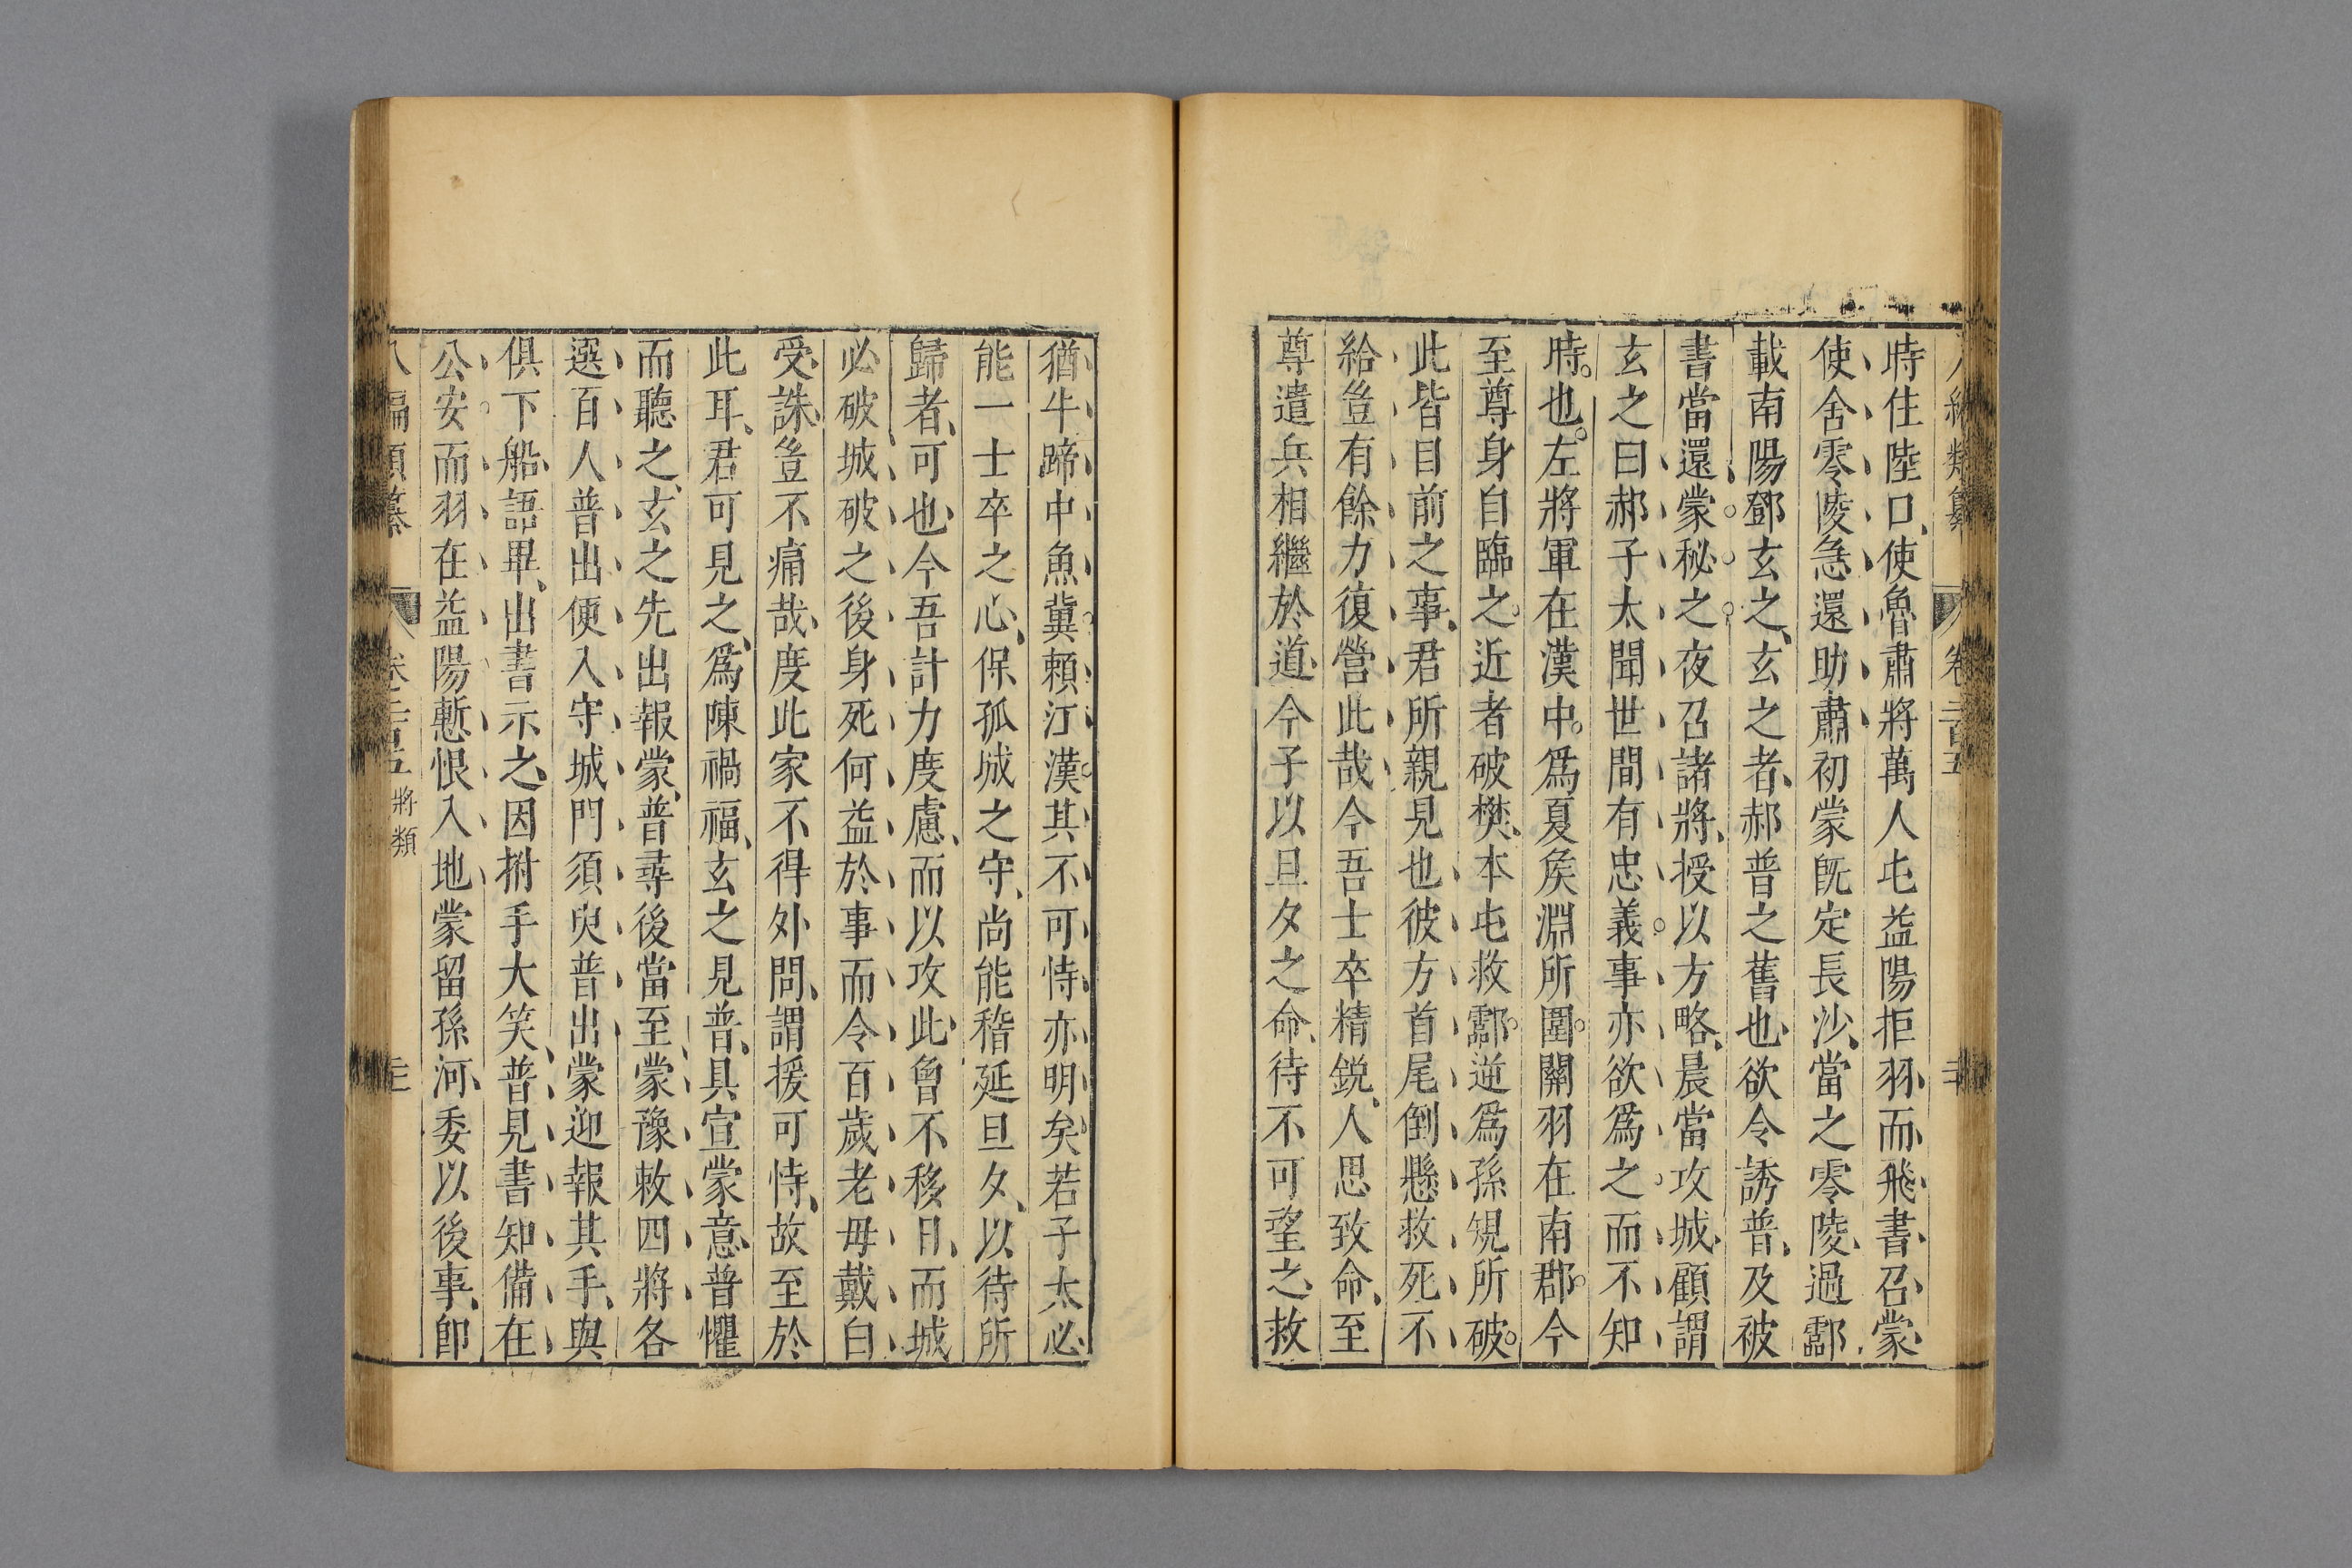 時住陸口使魯肅將萬人屯益陽拒羽而飛書召蒙
使舍零陵急還助肅初蒙既定長沙當之零陵過酃
載南陽鄧玄之玄之者郝普之舊也欲令誘普及被
書當還蒙秘之夜召諸將授以方略晨當攻城顧謂
玄之曰郝子太聞世間有忠義事亦欲爲之而不知
時也左將軍在漢中爲夏侯淵所圍關羽在南郡今
至尊身自臨之近者破樊本屯救酃逆爲孫規所破
此皆目前之事君所親見也彼方首尾倒懸救死不
給豈有餘力復營此哉今吾士卒精銳人思致命至
尊遣兵相繼於道今子以旦夕之命待不可望之救
猶牛蹄中魚冀頼江漢其不可恃亦明矣若子太必
能一士卒之心保孤城之守尚能稽延旦夕以待所
歸者可也今吾計力度慮而以攻此曾不移日而城
必破城破之後身死何益於事而令百歲老母戴白
受誅豈不痛哉度此家不得外問謂援可恃故至於
此耳君可見之爲陳禍福玄之見普具宣蒙意普懼
而聽之玄之先出報蒙普尋後當至蒙豫敕四將各
選百人普出便入守城門須臾普出蒙迎報其手與
俱下船語畢出書示之因拊手大笑普見書知備在
公安而羽在益陽慙恨入地蒙留孫河委以後事卽
八編類纂 卷二百五 將類